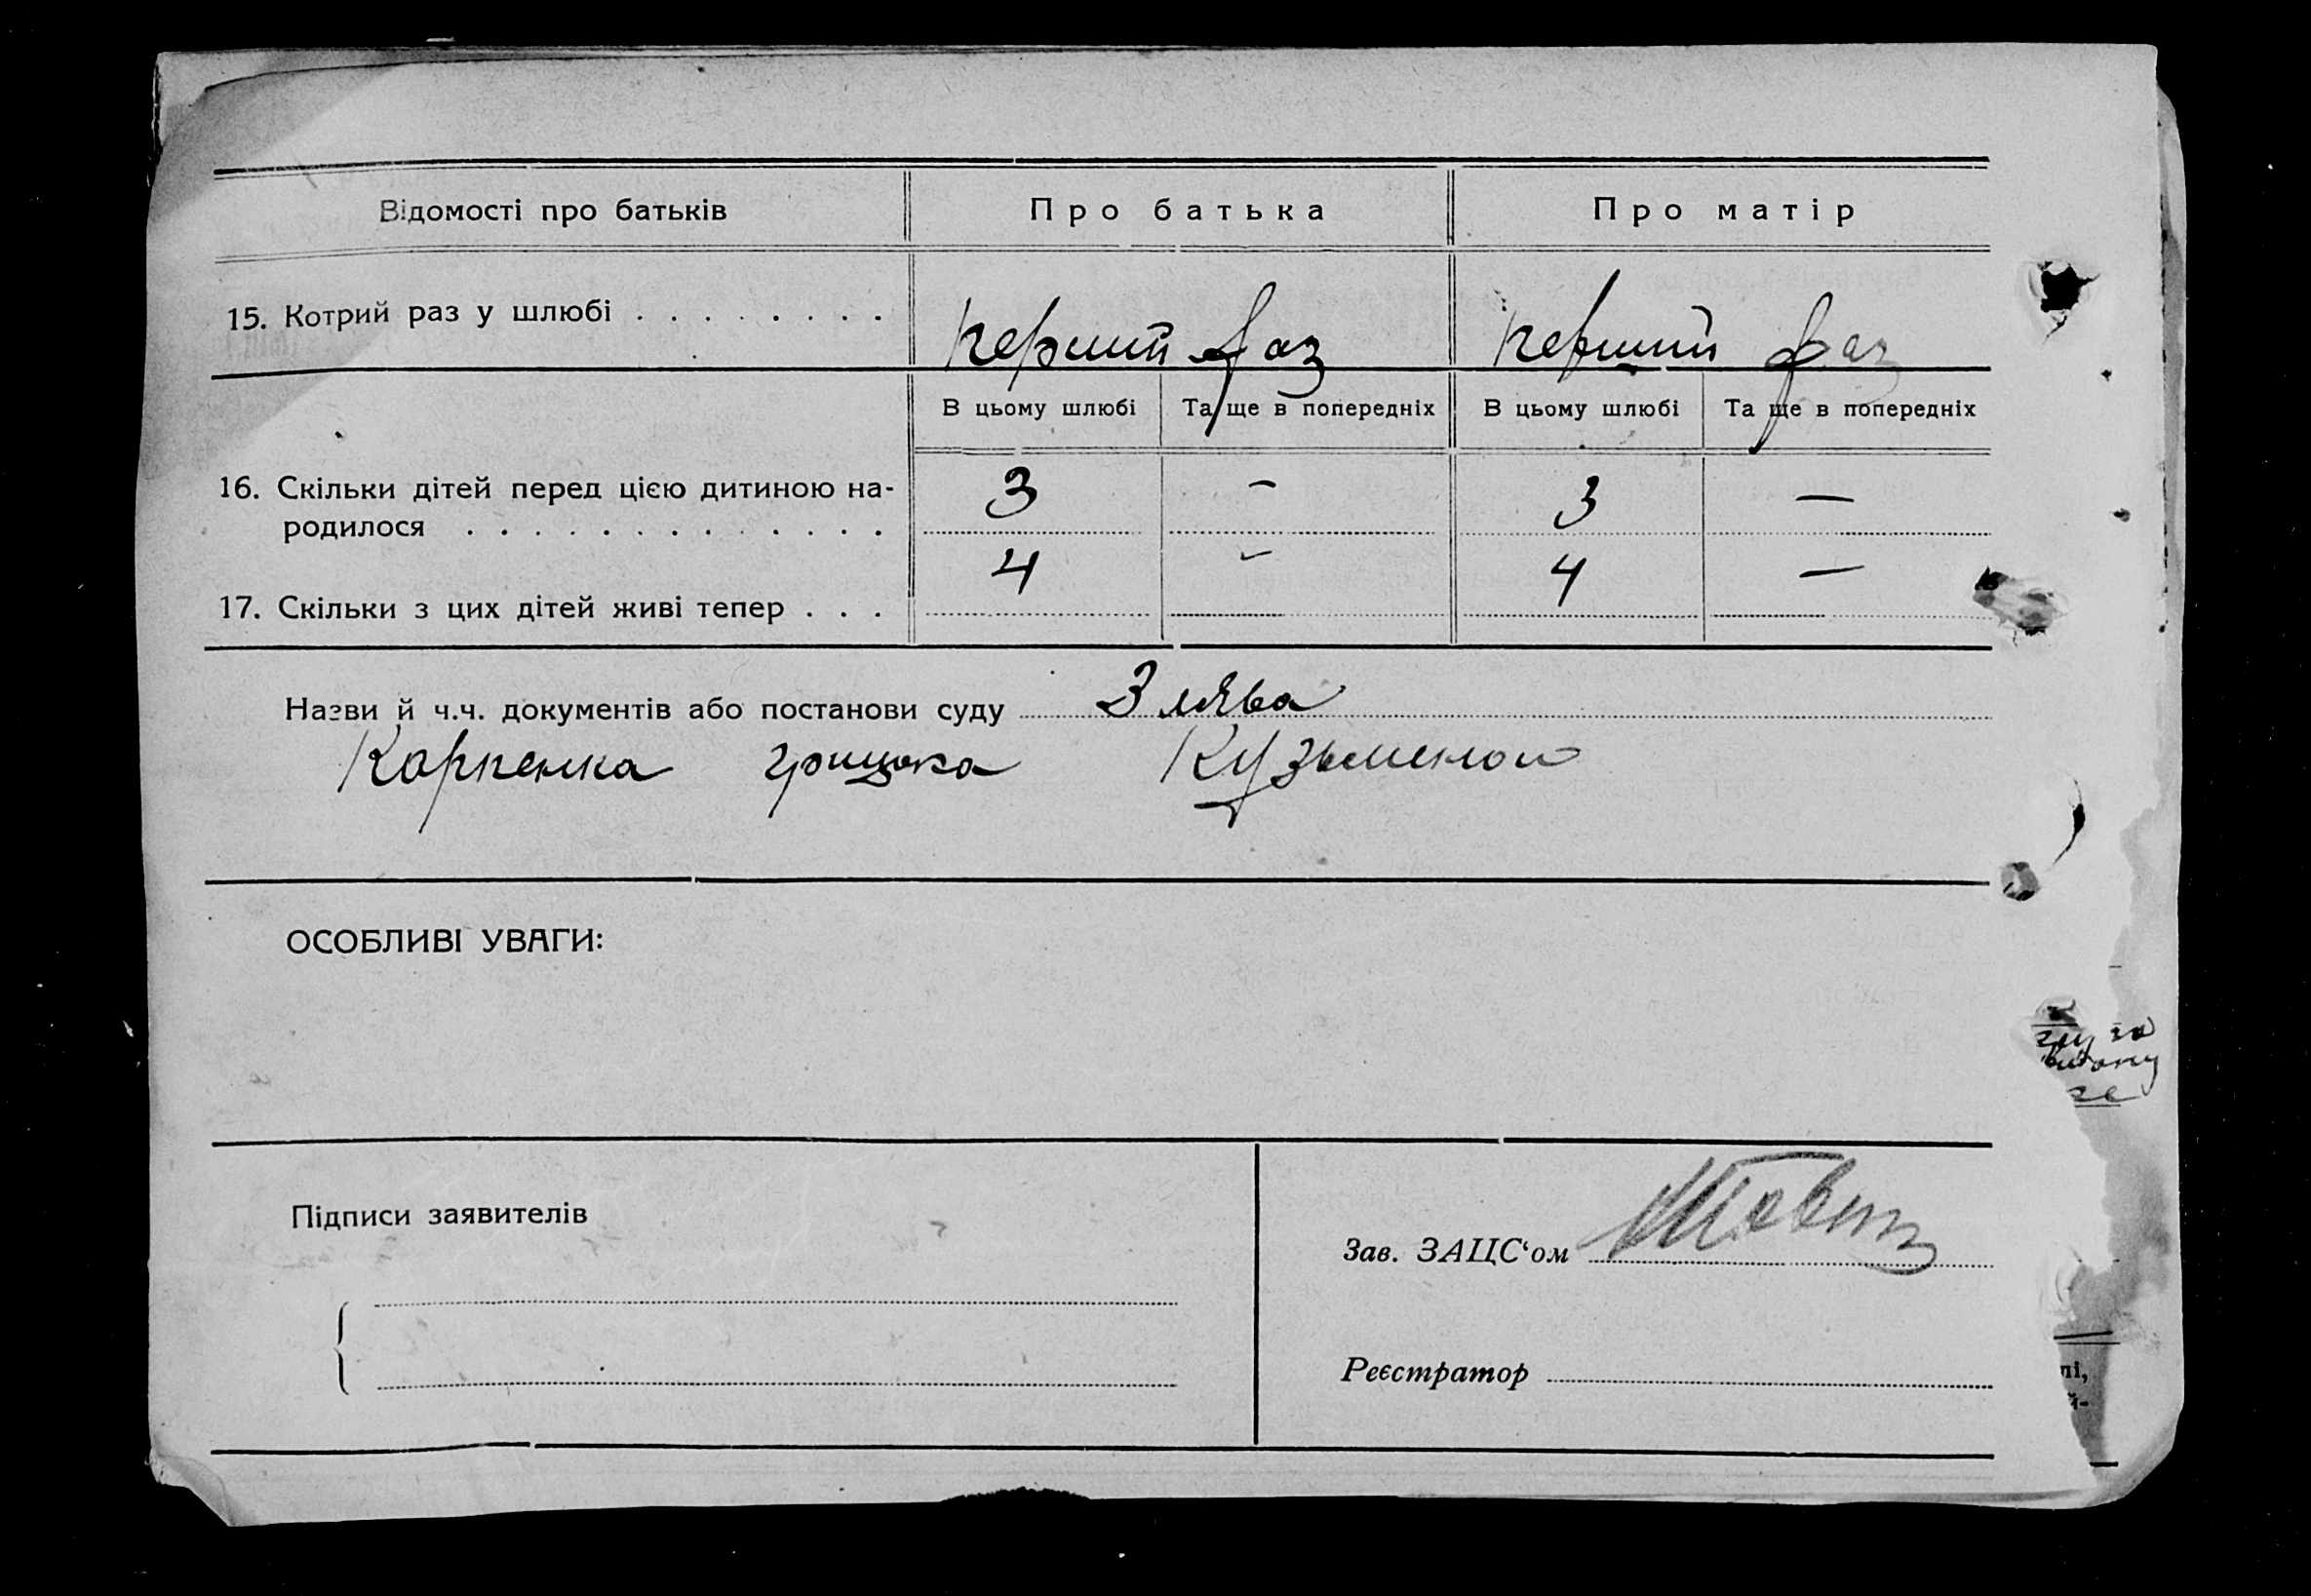 Відомості про батьків Про батька Про матір
15. Котрий раз у шлюбі . . . . . . . . перший раз перший раз
В цьому шлюбі Та ще в попередніх В цьому шлюбі Та ще в попередніх
16. Скільки дітей перед цією дитиною на- 3 - 3 —
родилося . . . . . . . . . . . . .
17. Скільки з цих дітей живі тепер . . . 4 - 4 —
Назви й ч.ч. документів або постанови суду Заява
Карпенка Грицька
ОСОБЛИВІ УВАГИ:
Підписи заявителів
Зав. ЗАЦС‘ом
Реєстратор